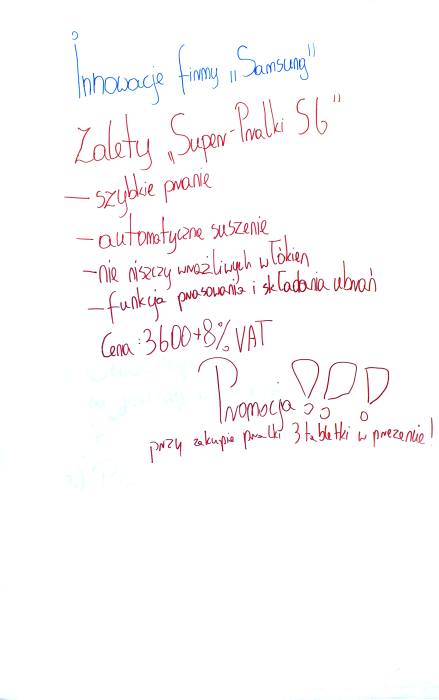 Innowacje firmy „Samsung"
Zalety „Super-Pralki S6"
— szybkie pranie
— automatyczne suszenie
— nie niszczy wrażliwych włókien
— funkcja prasowania i składania ubrań
Cena: 3600+8% VAT
Promocja!!!
przy zakupie pralki 3 tabletki w prezencie!